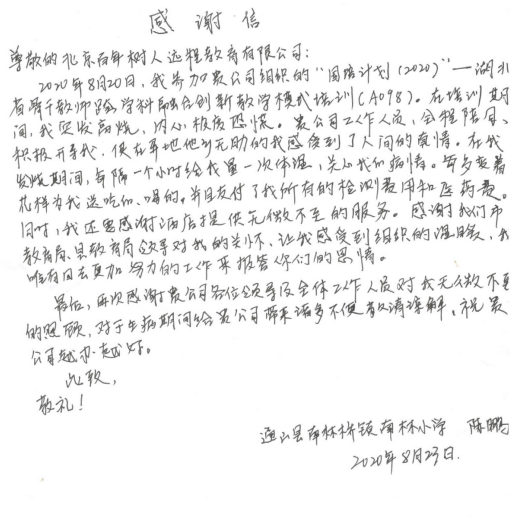 感谢信
尊敬的北京百年树人远程教育有限公司：
2020年8月20日，我参加贵公司组织的“国培计划（2020）”—湖北
省骨干教师跨学科融合创新教学模式培训（A098）。在培训期
间，我突发高烧，内心极度恐慌。贵公司工作人员，全程陪同、
积极开导我，使在异地他乡无助的我感受到了人间的真情。在我
发烧期间，每隔一个小时给我量一次体温，关心我的病情。每天变着
花样为我送吃的、喝的，并且支付了我所有的检测费用和医药费。
同时，我还要感谢酒店提供无微不至的服务。感谢我们市
教育局、县教育局领导对我的关怀，让我感受到组织的温暖，我
唯有日后更加努力的工作来报答你们的恩情。
最后，再次感谢贵公司各位领导及全体工作人员对我无微不至
的照顾，对于生病期间给贵公司带来诸多不便敬请谅解。祝贵
公司越办越好。
此致，
敬礼！
通山县南林桥镇南林小学 陈鹏
2020年8月23日.